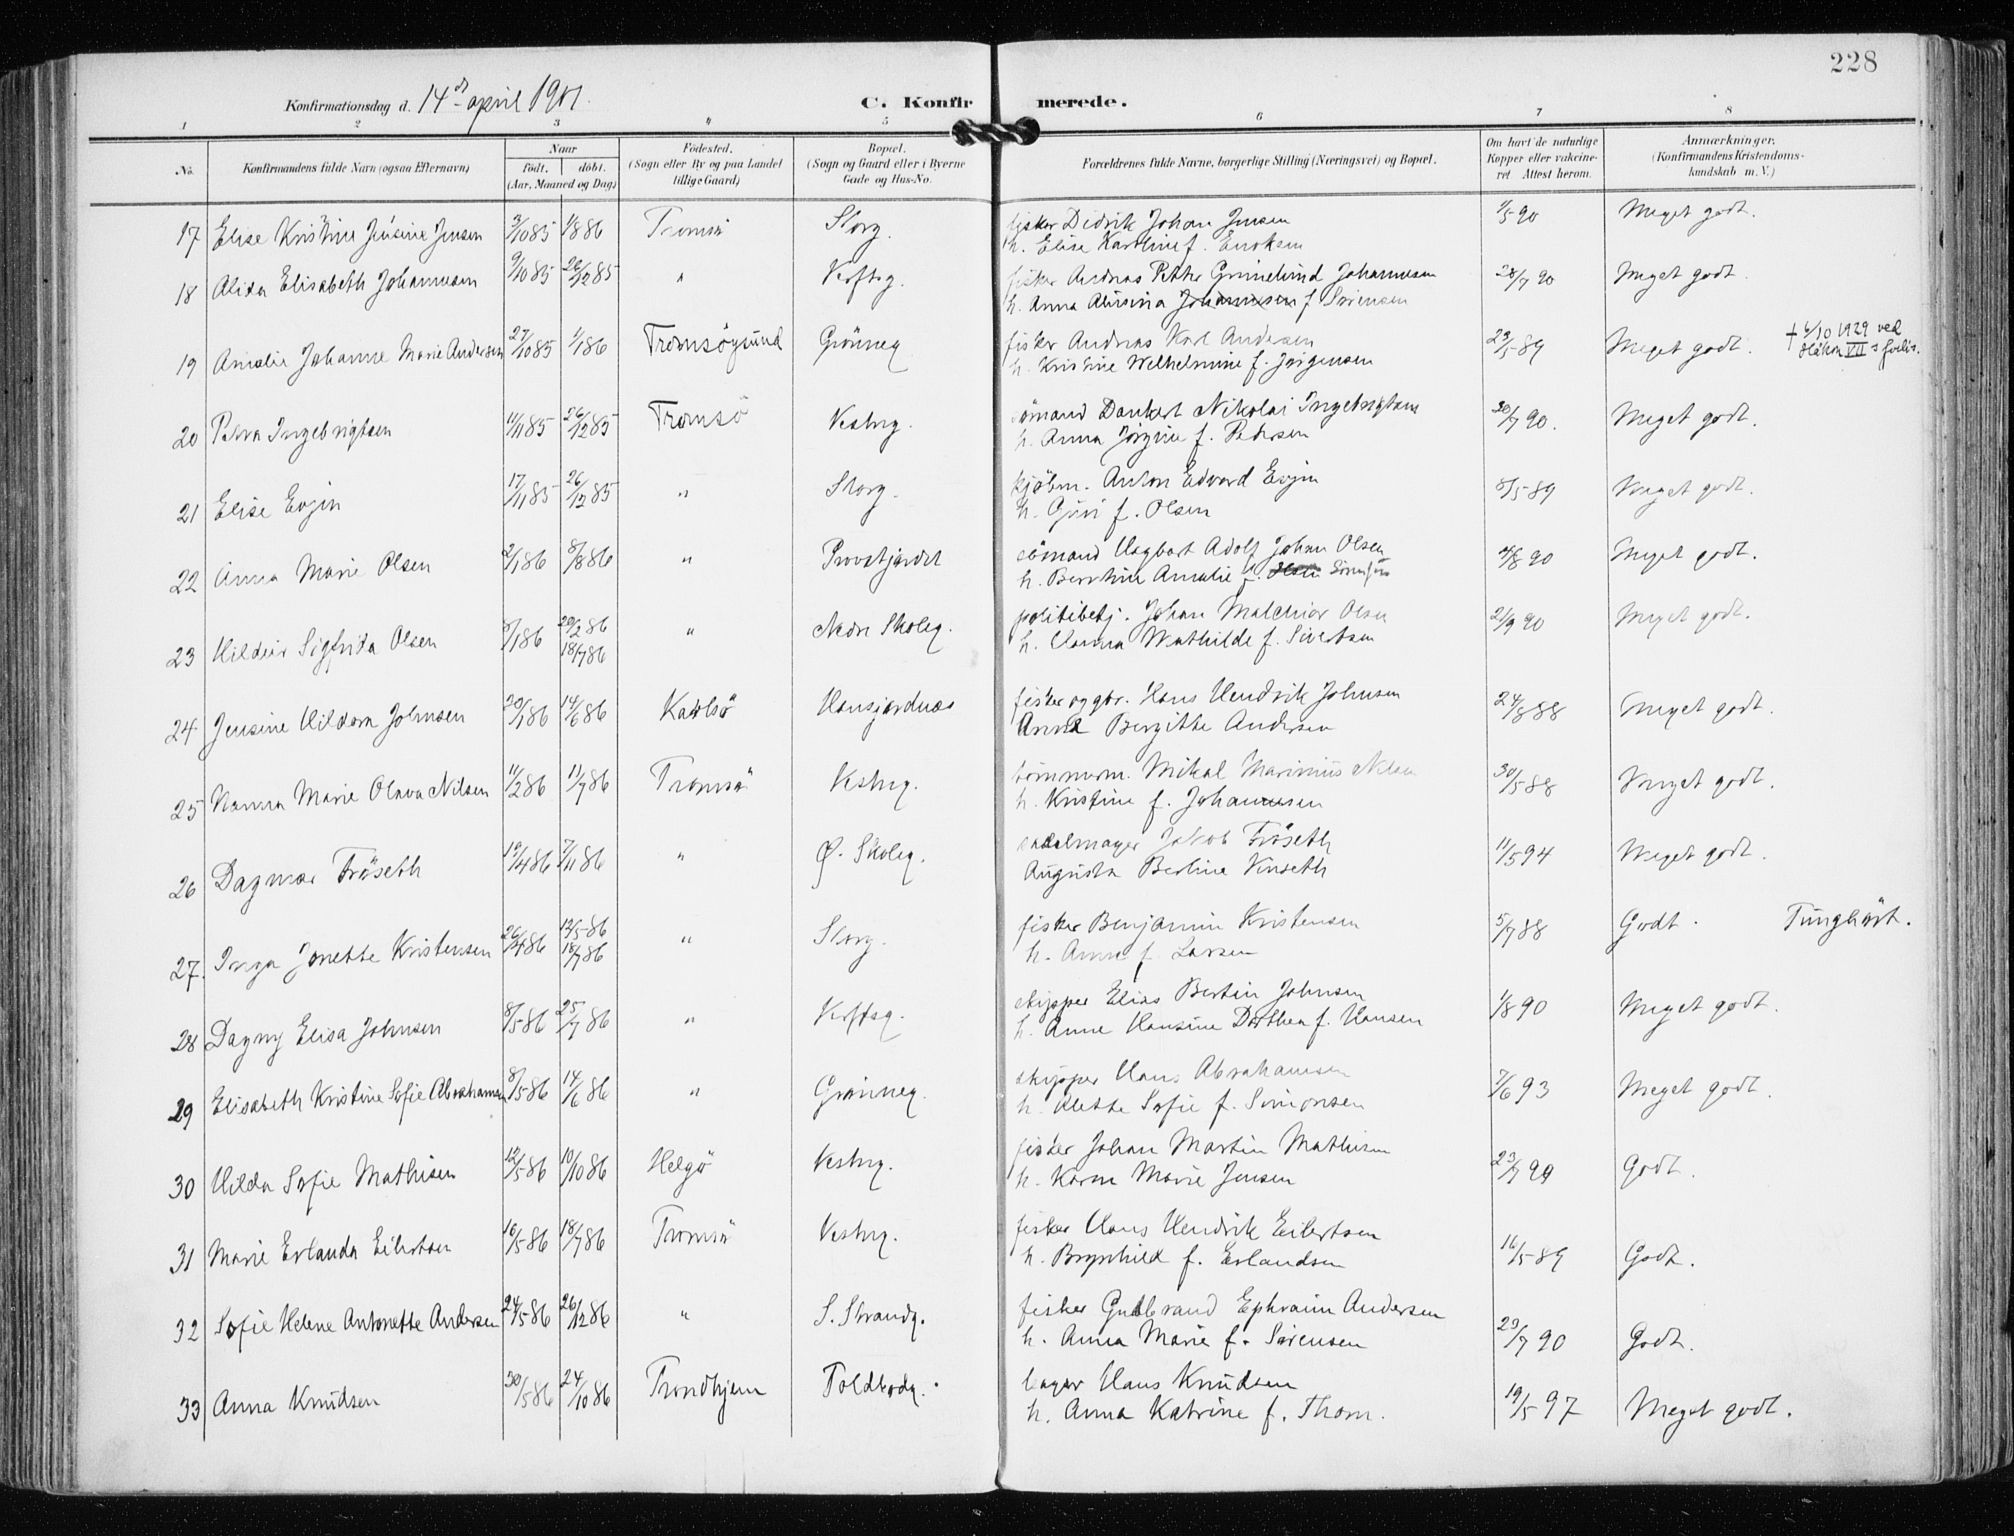 228
Konfirmationsdag d. 14de april 1901.
C. Konfirmerede.
1 2 3 4 5 6 7 8
No. Konfirmandens fulde Navn (ogsaa Efternavn) Naar født. døbt. (Aar, Maaned og Dag) Fødested. (Sogn eller By og paa Landet tillige Gaard) Bopæl. (Sogn og Gaard eller i Byerne Gade og Hus-No. Forældrenes fulde Navne, borgerlige Stilling (Næringsvei) og Bopæl. Om havt de naturlige Kopper eller vakcineret Attest herom. Anmærkninger. (Konfirmandens Kristendomskundskab m. V.)
17 Elise Kristine Jensine Jensen 3/10 85 1/8 86 Tromsö Storg. fisker Didrik Johan Jensen 1/5 90 Meget godt.
h. Elise Karoline f. Enoksen
18 Alida Elisabeth Johannesen 9/10 85 26/12 85 " Verftsg. fisker Andreas Petter Grönelund Johannesen 28/7 90 Meget godt.
h. Anna Johannesen f. Sörensen
19 Amalie Johanne Marie Andersen 27/10 85 1/1 86 Tromsöysund Grönneg fisker Andreas Karl Andersen 23/5 89 Meget godt. † 6/10 1929 ved
h. Kristine Welhelmine f. Jörgensen Håkon VII s
20 Petra Ingebrigtsen 11/11 85 26/12 85 Tromsö Vestreg. sömand Dankert Nikolai Ingebrigtsen 30/7 90. Meget godt.
h. Anna Jörgine f. Pedersen
21 Elise Evjen 17/11 85 26/12 85 " Storg. kjöbm. Anton Edvard Evjen 8/5 89 Meget godt.
h. Guri f. Olsen
22 Anna Marie Olsen 2/1 86 8/8 86 " Provstjordet sömand Hagbart Adolf Johan Olsen 4/8 90 Meget godt.
h. Berntine Amalie f.
23 Hildur Sigfrida Olsen 8/1 86 20/2 86 18/7 86 " Nedre Skoleg. politibetj. Johan Malchior Olsen 21/9 90 Meget godt.
h. Hanna Mathilde f. Sivertsen
24 Jensine Hildora Johnsen 20/1 86 14/6 86 Karlsö Hansjordnæs fisker og gbr. Hans Hendrik Johnsen 24/8 88 Meget godt.
Anna Bergitte Andersen
25 Hanna Marie Olava Nilsen 11/2 86 11/7 86 Tromsö Vestreg. tömmerm. Mikal Marinius Nilsen 30/5 88 Meget godt.
h. Kristine f. Johannesen
26 Dagmar Fröseth 19/4 86 7/11 86 " Ø. Skoleg. sadelmager Jakob Fröseth 11/5 94 Meget godt.
Augusta Berline Vinseth
27. Inga Jonette Kristensen 26/4 86 12/5 86 18/7 86 " Storg. fisker Benjamin Kristensen 5/7 88 Godt. Tunghört.
h. Anna f. Larsen
28 Dagny Elisa Johnsen 8/5 86 25/7 86 " Verftsg. skipper Elias Bertin Johnsen 1/8 90 Meget godt.
h. Anne Hansine Dorthea f. Hansen
29 Elisabeth Kristine Sofie Abrahamsen 8/5 86 14/6 86 " Grönneg. skipper Hans Abrahamsen 7/6 93 Meget godt.
h. Alette Sofie f. Simonsen
30 Hilda Sofie Mathisen 12/5 86 10/10 86 Helgö Vestreg. fisker Johan Martin Mathisen 23/7 90 Godt.
h. Karen Marie Jensen
31 Marie Erlanda Eilertsen 16/5 86 18/7 86 Tromsö Vestreg. fisker Hans Hendrik Eilertsen 16/5 89 Godt.
h. Brynhild f. Erlandsen
32 Sofie Helene Antonette Andersen 24/5 86 26/12 86 " S. Strandg. fisker Gudbrand Ephraim Andersen 29/7 90 Godt.
h. Anna Marie f. Sörensen
33 Anna Knudsen 30/5 86 24/10 86 Trondhjem Toldbodg. bager Hans Knudsen 19/5 97 Meget godt.
h. Anna Katrine f. Thom.